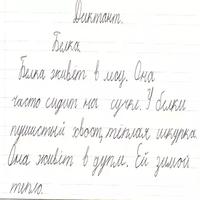 Диктант.
Белка
Белка живёт в лесу. Она
часто сидит на сучке. У белки
пушистый хвост, тёплая шкурка.
Она живёт в дупле. Ей зимой
тепло.